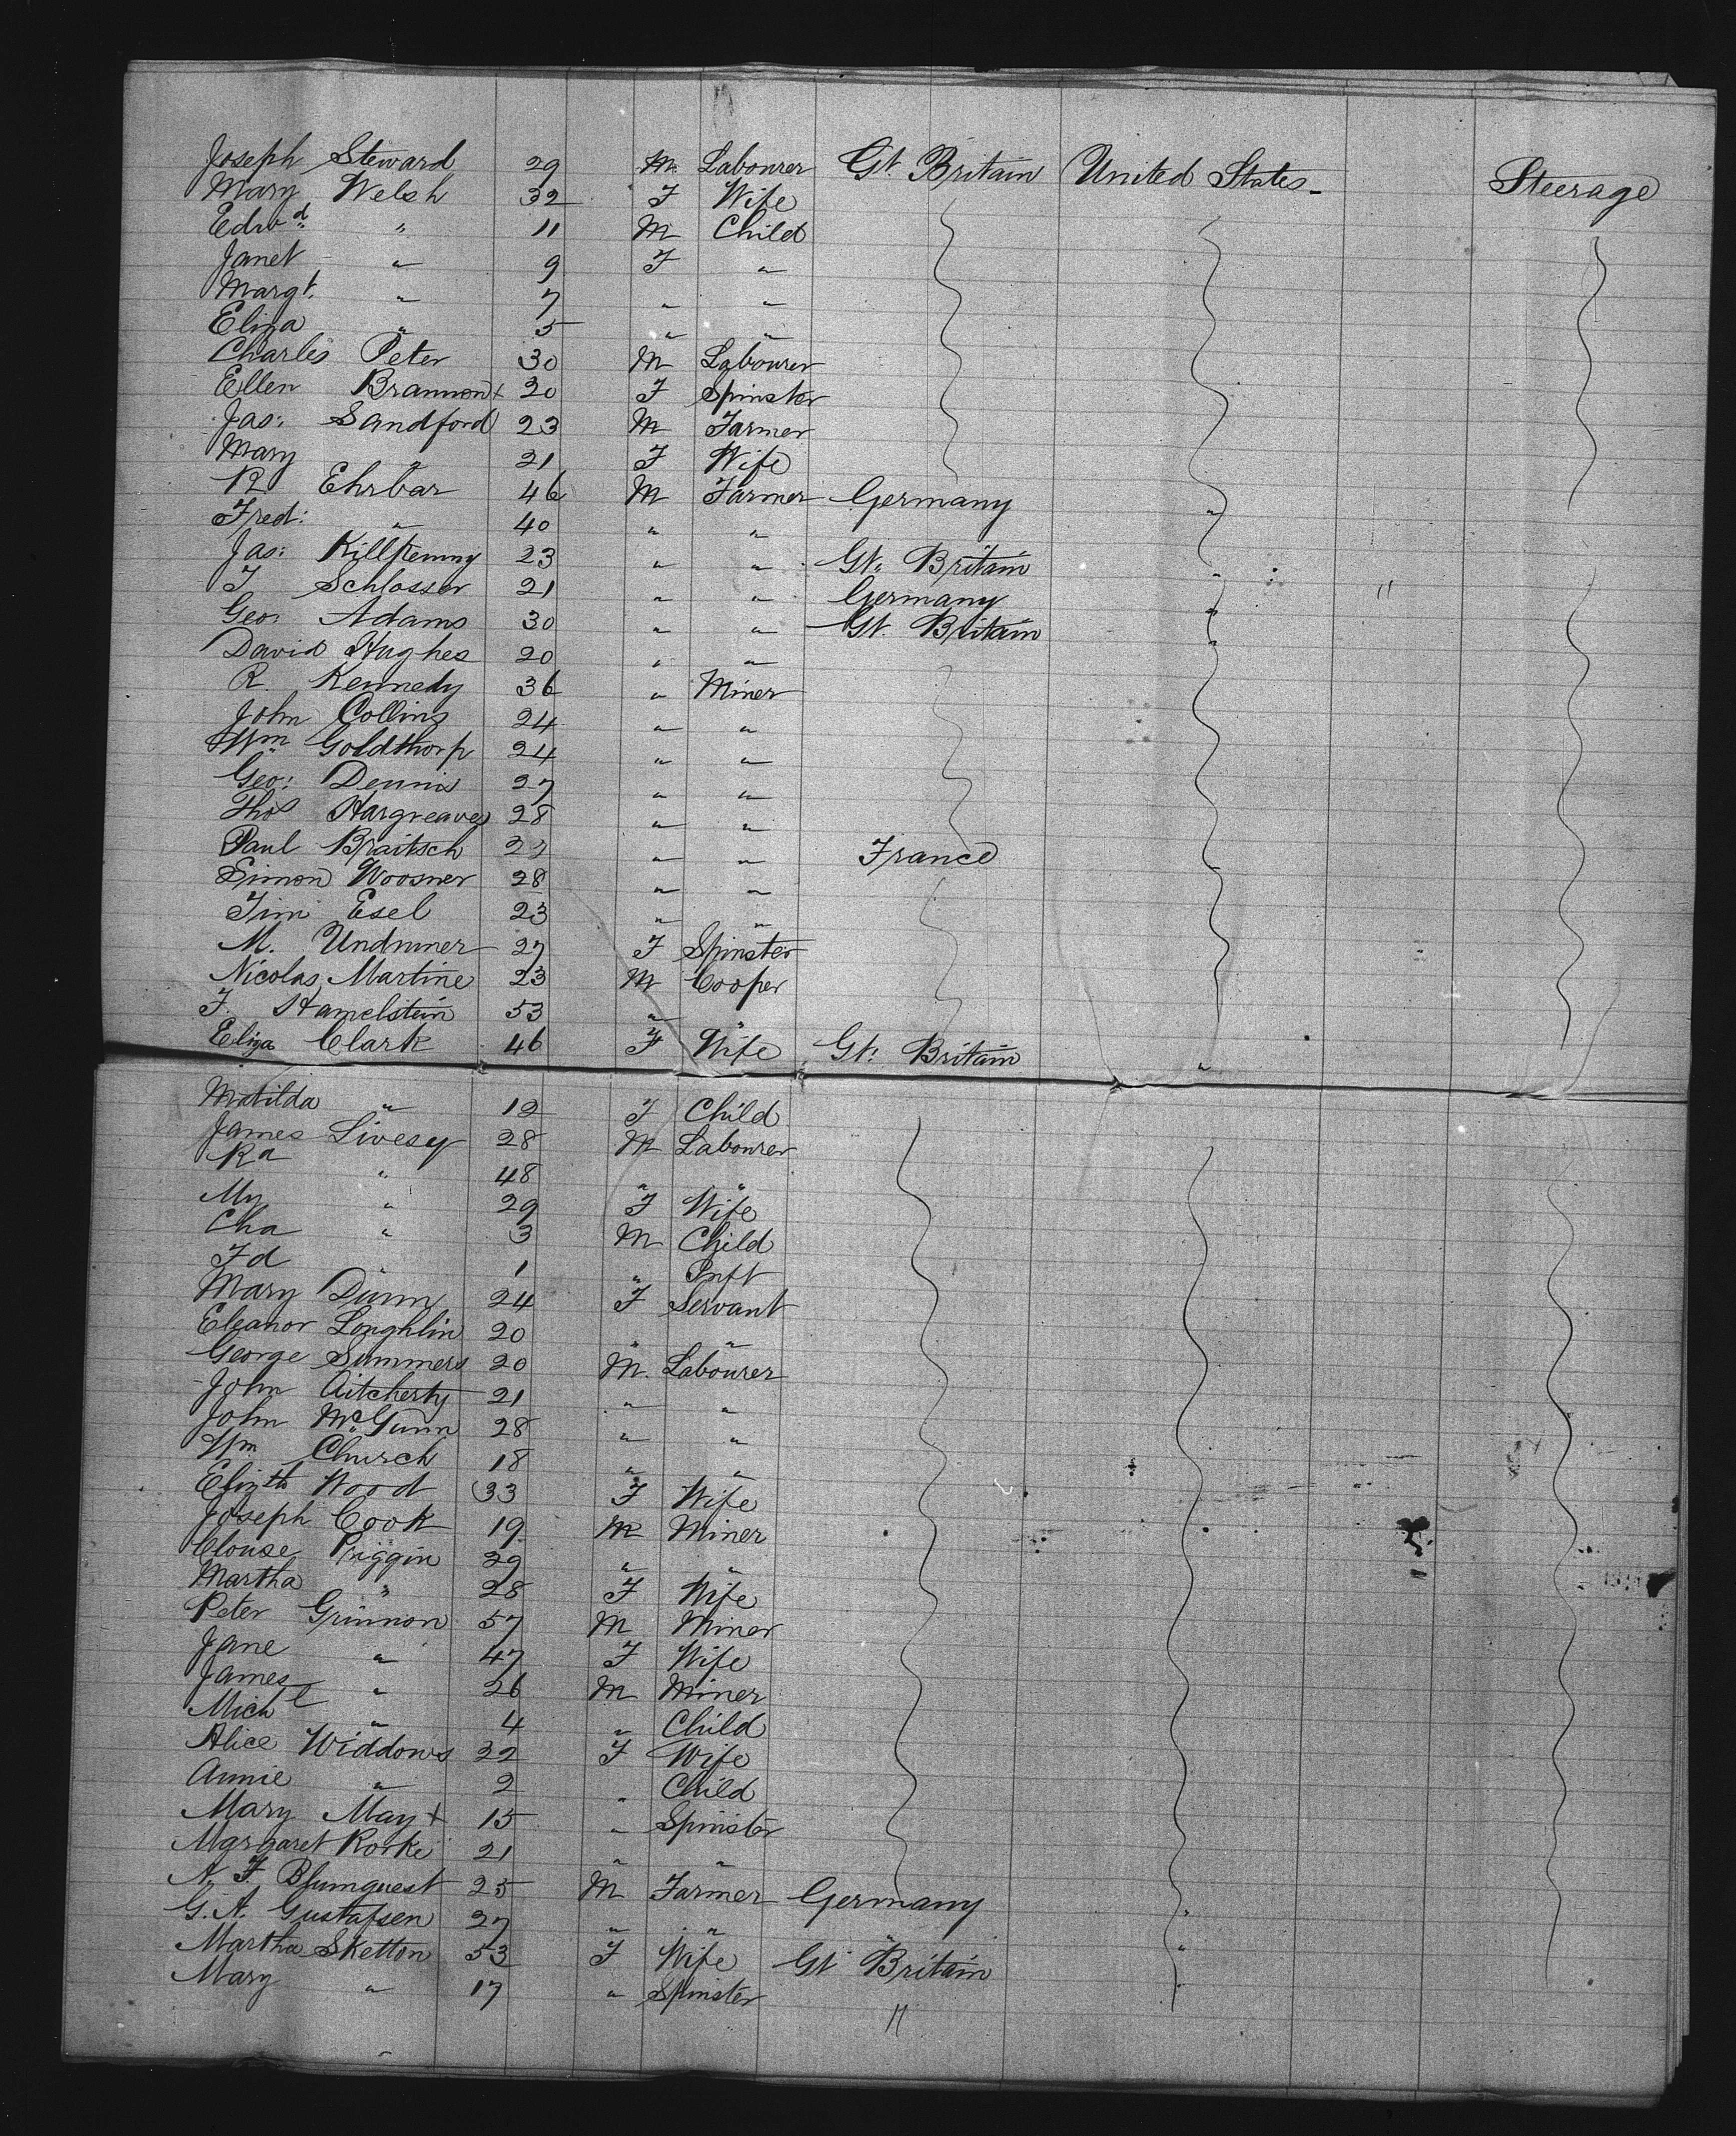 Joseph Steward 29 M. Labourer Gt. Britain United States - Steerage
Mary Welsh 32 F Wife
Edwd. " 11 M Child
Janet " 9 F "
Margt. " 7 " "
Eliza " 5 " "
Charles Peter 30 M Labourer
Ellen Brannon + 20 F Spinster
Jas: Sandford 23 M Farmer
Mary " 21 F Wife
R Ehrbar 46 M Farmer Germany "
Fred: " 40 " "
Jas: Killkenny 23 " " Gt. Britain "
F Schlosser 21 " " Germany " "
Geo: Adams 30 " " Gt. Britain "
David Hughes 20 " "
R. Kennedy 36 " Miner
John Collins 24 " "
Wm Goldthorp 24 " "
Geo: Dennis 27 " "
Thos Hargreaves 28 " "
Paul Braitsch 27 " " France
Simon Woosner 28 " "
Tim Esel 23 " "
M. Undruner 27 F Spinster
Nicolas Martine 23 M Cooper
F. Hamelstein 53 " "
Eliza Clark 46 F Wife Gt: Britain "
Matilda " 12 F Child
James Livesey 28 M Labourer
Ra " 48 " "
My " 29 F Wife
Cha " 3 M Child
Fd " 1 " Inft
Mary Dunn 24 F Servant
Eleanor Loughlin 20 " "
George Summers 20 M. Labourer
John Aitcherty 21 " "
John McGunn 28 " "
Wm Church 18 " "
Elizth Wood 33 F Wife
Joseph Cook 19 M Miner
Clouse Priggin 29 " "
Martha " 28 F Wife
Peter Grinnon 57 M Miner
Jane " 47 F Wife
James " 26 M Miner
Michl " 4 " Child
Alice Widdows 22 F Wife
Annie " 2 " Child
Mary May + 15 " Spinster
Margaret Rorke 21 " "
N. F. Blumquest 25 M Farmer Germany "
G. A. Gustafsen 27 " " " "
Martha Sketton 53 F Wife Gt Britain "
Mary " 17 " Spinster "